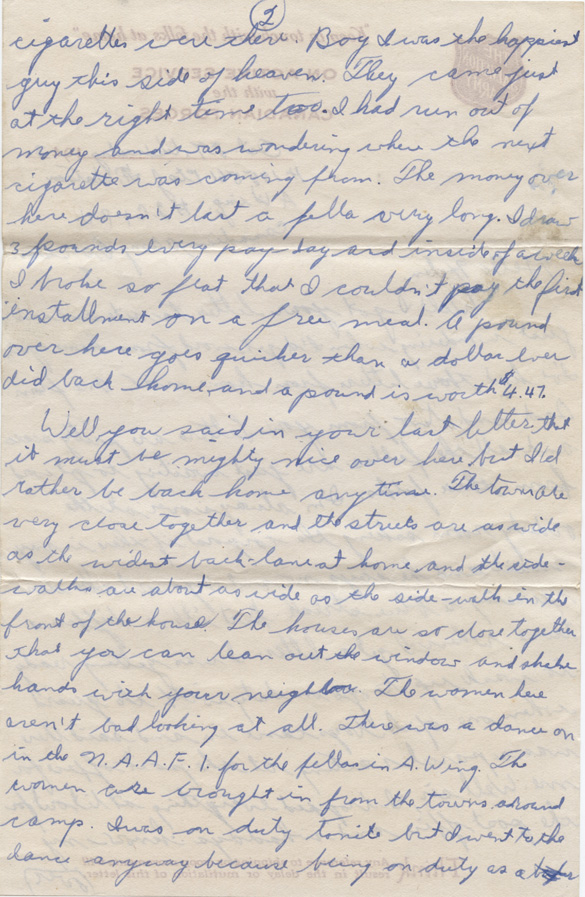 2
cigarettes were there. Boy I was the happiest
guy this side of heaven. They came just
at the right time too. I had run out of
money and was wondering where the next
cigarette was coming from. The money over
here doesn't last a fella very long. I draw
3 pounds every pay-day and inside of a week
I broke so flat that I couldn't pay the first
installment on a free meal. A pound
over here goes quicker than a dollar ever
did back home and a pound is worth $4.47.
Well you said in your last letter that
it must be mighty nice over here but I'd
rather be back home anytime. The towns are
very close together and the streets are as wide
as the widest back-lane at home and the side-
walks are about as wide as the side-walk in the
front of the house. The houses are so close together
that you can lean out the window and shake
hands with your neighbor. The women here
aren't bad looking at all. There was a dance on
in the N.A.A.F.I. for the fellas in A. Wing. The
women are brought in from the towns around
camp. I was on duty tonite but I went to the
dance anyway because being on duty as a